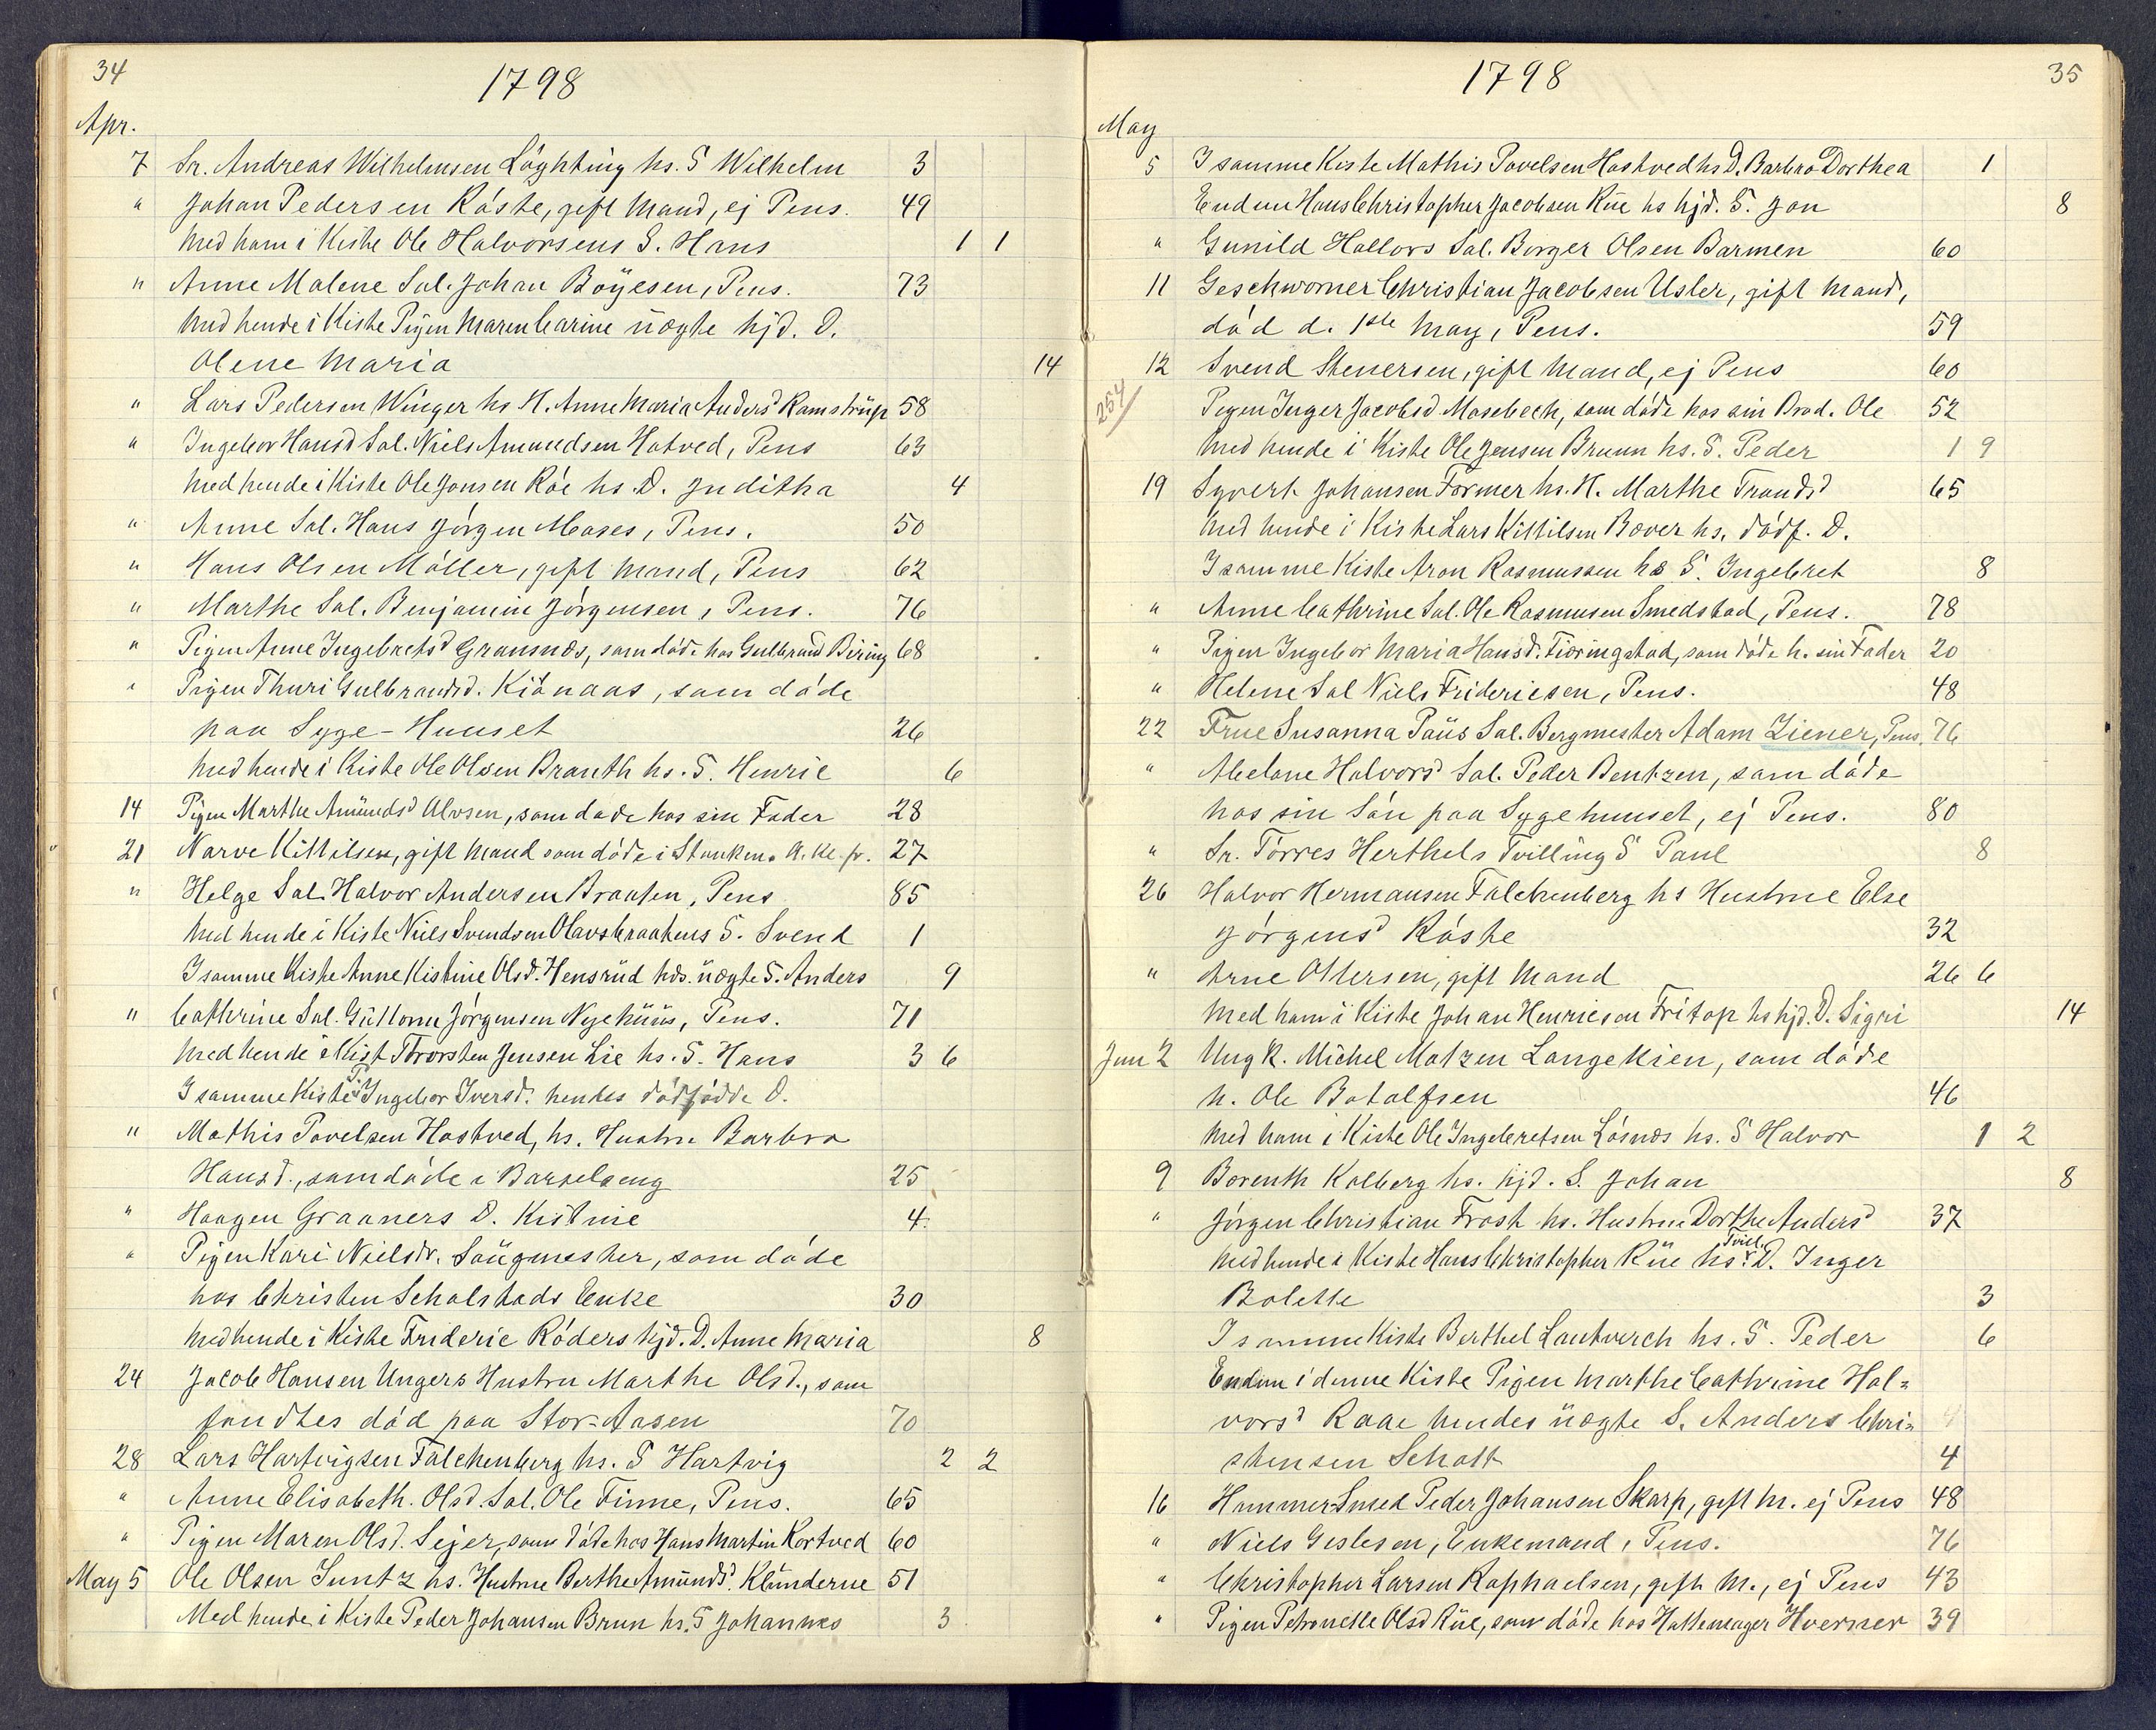 34
1798
Apr.
7 Sr. Andreas Wilhelmsen Löghting hs. S Wilhelm 3
" Johan Pedersen Råste, gift Mand, ej Pens. 49
Med ham i Kiste Ole Halvorsens S. Hans 1 1
" Anne Malene Sal. Johan Böyesen, Pens. 73
Med hende i Kiste Pigen Maren Carine üægte hjd. D.
Olene Maria 14
" Lars Pedersen Winger hs H. Anne Maria Andersd Ramstrüp 58
" Ingebor Hansd Sal. Niels Amundsen Hotved, Pens 63
Med hende i Kiste Ole Jonsen Röe hs. D. Juditha 4
" Anne Sal. Hans Jörgen Moses, Pens. 50
" Hans Olsen Möller, gift Mand, Pens 62
" Marthe Sal. Benjamin Jörgensen, Pens. 76
" Pigen Anne Ingebretsd Gransnæs, som döde hos Gulbrand Biring 68
" Pigen Thuri Gulbrandsd. Kiönaas, som döde
paa Syge-Huuset 26
Med hende i Kiste Ole Olsen Branth hs. S. Henric 6
14 Pigen Marthe Amündsd Alvsen, som døde hos sin Fader 28
" 21 Narve Kittilsen, gift Mand som döde i Stanken. A. Kl. fr. 27
" Helge Sal. Halvor Andersen Braaten, Pens 85
Med hende i Kiste Niels Svendsen Olavsbraatens S. Svend 1
I samme Kiste Anne Kistine Olsd. Hensrüd hds. üægte S. Anders 9
" Cathrine Sal. Güttorm Jörgensen Nyehüüs, Pens. 71
Med hende i Kist Thorsten Jensen Lie hs. S. Hans 3 6
I samme Kiste Ingebor Iversd. hendes dödfödde D.
" Mathis Povelsen Hostved, hs. Hustru Barbro
Hansd., som döde i Barselseng 25
" Haagen Graaners D. Kistine 4
" Pigen Kari Nielsdr. Saügmester, som döde
hos Christen Scholstads Enke 30
Med hende i Kiste Frideric Röders hjd. D. Anne Maria 8
24 Jacob Hansen Ungers Hustru Marthe Olsd., som
fandtes död paa Stor-Aasen 70
28 Lars Hartvigsen Falchenberg hs. S Hartvig 2 2
" Anne Elisabeth. Olsd. Sal. Ole Finne, Pens. 65
" Pigen Maren Olsd. Sejer, som döde hos Hans Martin Kortved 60
May 5 Ole Olsen Suntz hs. Hustrue Berthe Amündsd. Klünderne 51
Med hende i Kiste Peder Johansen Brun hs. S Johannes 3
35
1798
May
5 I samme Kiste Mathis Povelsen Hostved hs D. Barbro Dorthea 1
Endnu Hans Christopher Jacobsen Rüe hs hjd. S. Jon 8
" Gunild Hallors Sal. Borger Olsen Barmen 60
11 Geschworner Christian Jacobsen Usler, gift Mand,
död d. 1ste May, Pens. 59
12 Svend Stenersen, gift Mand, ej Pens 60
254/
Pigen Inger Jacobsd Mosebech, som döde hos sin Brod. Ole 52
Med hende i Kiste Ole Jensen Bruun hs. S. Peder 1 9
19 Syvert Johansen Former hs. H. Marthe Trondsd 65
Med hende i Kiste Lars Kittilsen Bæver hs. dödf. D.
I samme Kiste Aron Rasmussen hs S. Ingebret 8
" Anne Cathrine Sal. Ole Rasmusen Smedstad, Pens. 78
" Pigen Ingebor Maria Hansd. Fiöringstad, som döde h. sin Fader 20
" Helene Sal Niels Fridericsen, Pens. 48
22 Frue Susanna Paüs Sal. Bergmester Adam Ziener, Pens. 76
" Abelone Halvorsd Sal. Peder Bentzen, som döde
hos sin Sön paa Sygehuuset, ej Pens. 80
" Sr. Törres Herthels Tvilling S Paul 8
26 Halvor Hermansen Falchenberg hs Hustrue Else
Jörgensd Råste 32
" Arne Ottersen, gift Mand 26 6
Med ham i Kiste Johan Henricsen Fritop hs hjd. D. Sigri 14
Jun 2 Ung K. Michel Matzen Langekien, som döde
h. Ole Botolfsen 46
Med ham i Kiste Ole Ingebretsen Lösnæs hs. S Halvor 1 2
9 Borenth Kolberg hs. hjd. S. Johan 8
" Jörgen Christian Frost hs. Hustrue Dorthe Andersd 37
Med hende i Kiste Hans Christopher Rüe hs. Tvill. D. Inger
Bolette 3
I samme Kiste Berthel Lautverch hs. S. Peder 6
Endnu i denne Kiste Pigen Marthe Cathrine Hal=
vorsd Raae hendes üægte S. Anders Chri=
stensen Schott 4
16 Hammer-Smed Peder Johansen Skarp, gift M. ej Pens 48
" Niels Geslesen, Enkemand, Pens. 76
" Christopher Larsen Raphaelsen, gift M., ej Pens 43
" Pigen Petronelle Olsd Rüe, som döde hos Hattemager Hverner 39